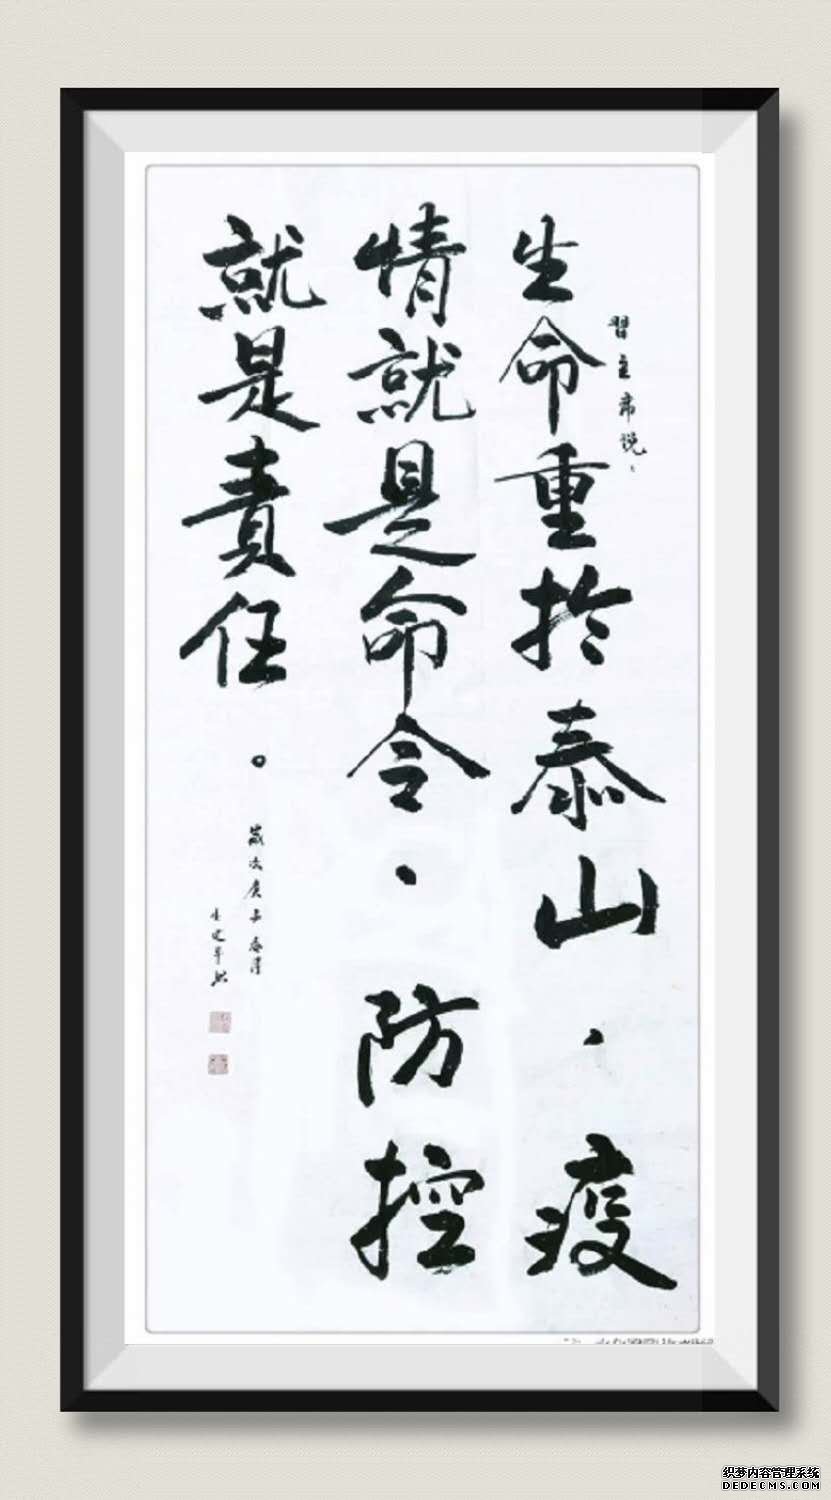 習主席说、
生命重於泰山、疫
情就是命令、防控
就是責任。
歲次庚子春月
织梦内容管理系统
DEDECMS.COM